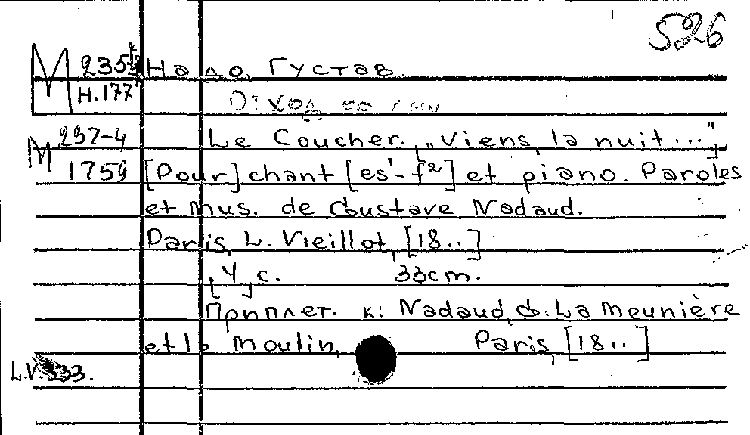 526
М 235 Надо, Густав.
Н.177 Отход ко сну
М 237-4 Le Coucher. „Viens, la nuit..."
1759 [Pour] chant [es¹-f²] et piano. Paroles
et mus. de Gustave Nadaud.
Paris, L. Vieillot, [18..]
[4] с. 33cm.
Приплет. к: Nadaud, G. La meunière
et le moulin, Paris, [18..]
L.V.333.